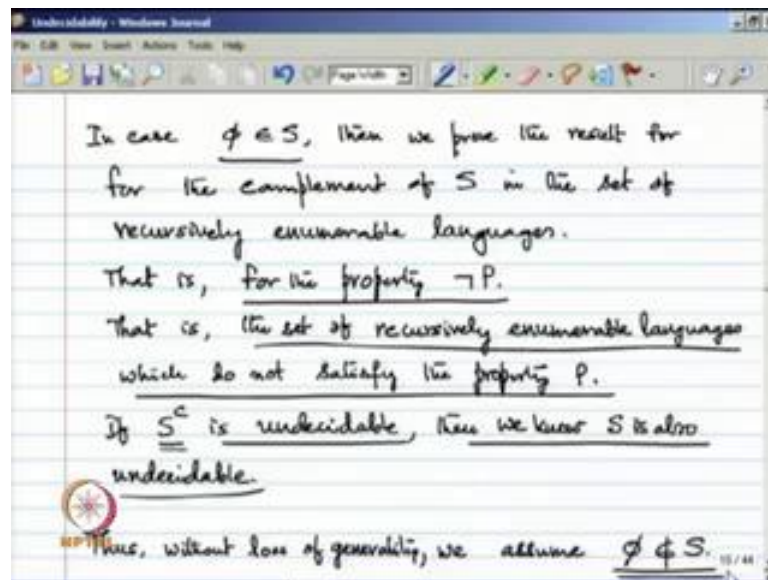 Undecidability - Windows Journal
File Edit View Insert Actions Tools Help
Page Width
In case ϕ ∈ S, then we prove the result for
for the complement of S in the set of
recursively enumerable languages.
That is, for the property ¬P.
That is, the set of recursively enumerable languages
which do not satisfy the property P.
If S^c is undecidable, then we know S is also
undecidable.
NPTEL
Thus, without loss of generality, we assume ϕ ∉ S.
15/44